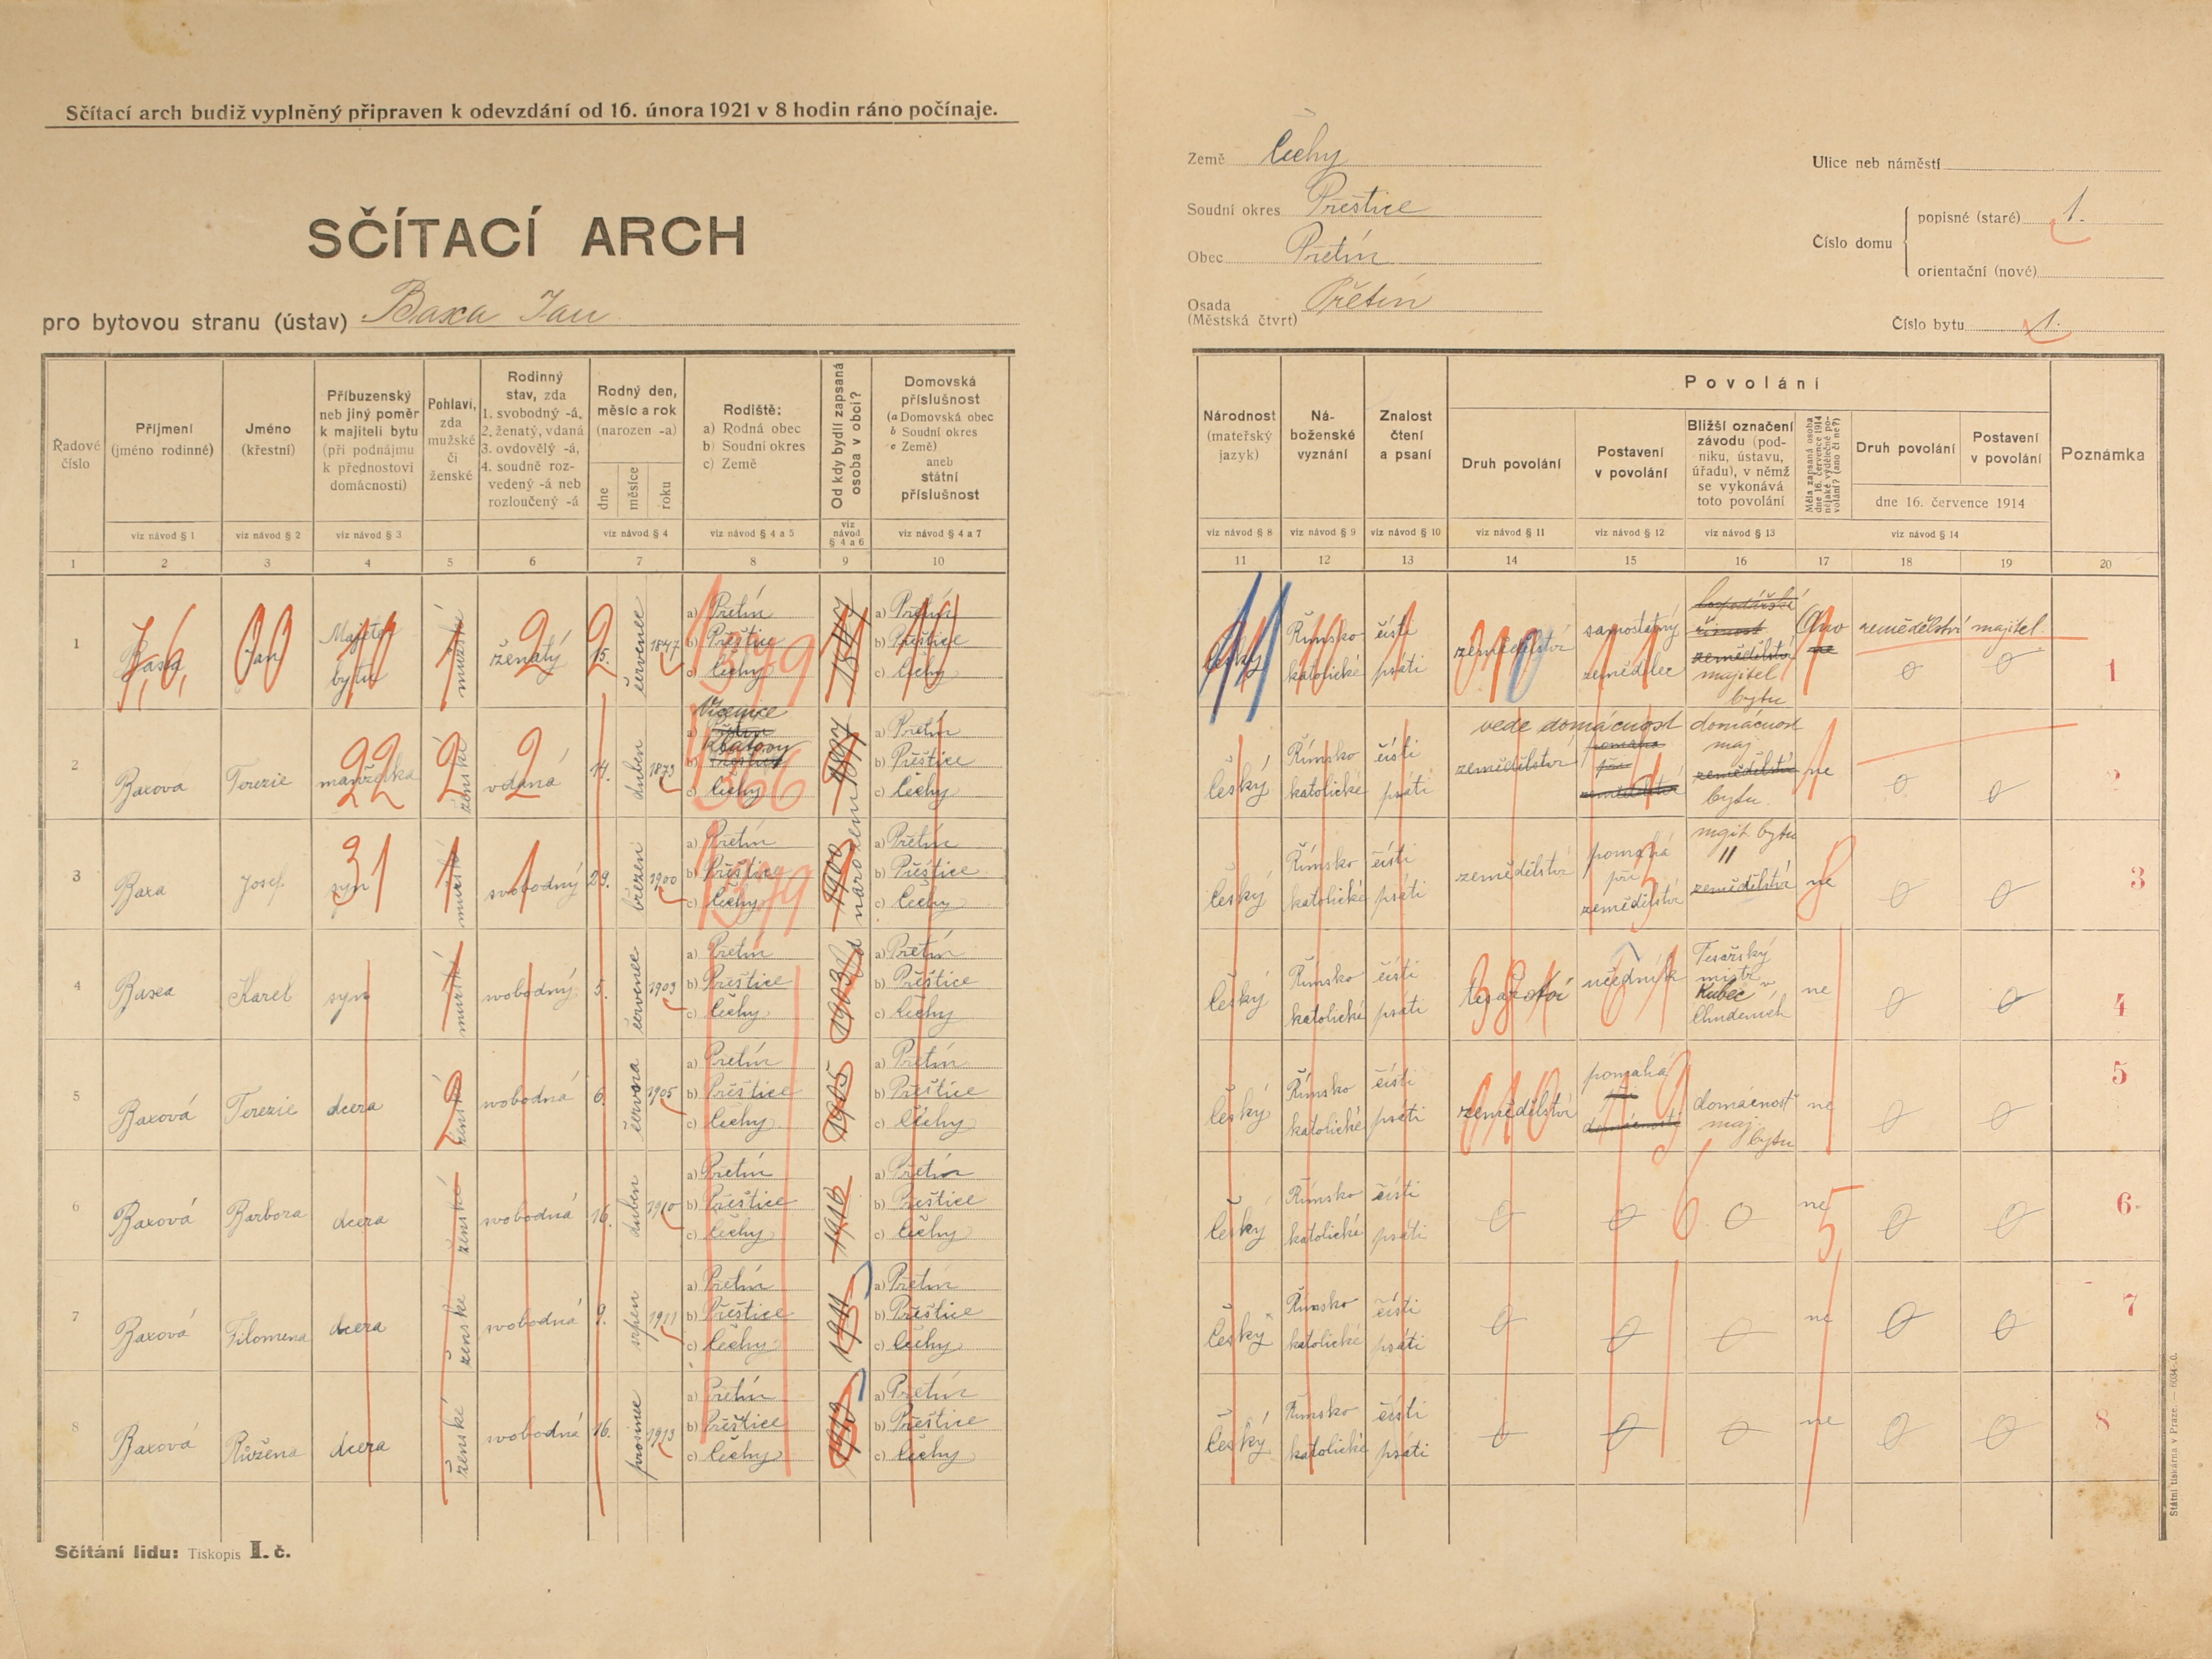 Sčítací arch budiž vyplněný připraven k odevzdání od 16. února 1921 v 8 hodin ráno počínaje.
SČÍTACÍ ARCH
pro bytovou stranu (ústav) Baxa Jan
Země Čechy
Soudní okres Přeštice
Obec Přetín
Osada (Městská čtvrt) Přetín
Ulice neb náměstí
Číslo domu
popisné (staré) 1.
orientační (nové)
Číslo bytu 1.
Řadové číslo
Příjmení (jméno rodinné)
Jméno (křestní)
Příbuzenský neb jiný poměr k majiteli bytu (při podnájmu k přednostovi domácnosti)
Pohlaví, zda mužské či ženské
Rodinný stav, zda 1. svobodný -á, 2. ženatý, vdaná 3. ovdovělý -á, 4. soudně rozvedený -á neb rozloučený -á
Rodný den, měsíc a rok (narozen -a)
dne měsíce roku
Rodiště: a) Rodná obec b) Soudní okres c) Země
Od kdy bydlí zapsaná osoba v obci?
Domovská příslušnost (a Domovská obec b Soudní okres c Země) aneb státní příslušnost
Národnost (mateřský jazyk)
Náboženské vyznání
Znalost čtení a psaní
Povolání
Druh povolání
Postavení v povolání
Bližší označení závodu (podniku, ústavu, úřadu), v němž se vykonává toto povolání
Měla zapsaná osoba dne 16. července 1914 nějaké výdělečné povolání? (ano či ne?)
Druh povolání
Postavení v povolání
dne 16. července 1914
Poznámka
viz návod § 1 viz návod § 2 viz návod § 3 viz návod § 4 viz návod § 4 a 5 viz návod § 4 a 6 viz návod § 4 a 7
viz návod § 8 viz návod § 9 viz návod § 10 viz návod § 11 viz návod § 12 viz návod § 13 viz návod § 14
1 2 3 4 5 6 7 8 9 10 11 12 13 14 15 16 17 18 19 20
1 Baxa Jan Majitel bytu mužské ženatý 15. červenec 1847 a) Přetín b) Přeštice c) Čechy 1847 a) Přetín b) Přeštice c) Čechy
český Římsko katolické čísti psáti zemědělství samostatný zemědělec hospodářská činnost zemědělství majitel bytu Ano ne zemědělství majitel 0 0 1
2 Baxova Terezie manželka ženské vdaná 14. duben 1873 a) Vícenice b) Klatovy c) Čechy 1897 a) Přetín b) Přeštice c) Čechy
český Římsko katolické čísti psáti vede domácnost zemědělství pomáhá při zemědělství domácnost maj. zemědělství bytu ne 0 0 2
3 Baxa Josef syn mužské svobodný 29. březen 1900 a) Přetín b) Přeštice c) Čechy 1900 Od narození a) Přetín b) Přeštice c) Čechy
český Římsko katolické čísti psáti zemědělství pomáhá při zemědělství majit. bytu zemědělství ne 0 0 3
4 Baxa Karel syn mužské svobodný 5. červenec 1903 a) Přetín b) Přeštice c) Čechy 1903 a) Přetín b) Přeštice c) Čechy
český Římsko katolické čísti psáti tesařství učedník Tesařský mistr Kubec v Chudenicích ne 0 0 4
5 Baxová Terezie dcera ženské svobodná 6. června 1905 a) Přetín b) Přeštice c) Čechy 1905 a) Přetín b) Přeštice c) Čechy
český Římsko katolické čísti psáti zemědělství pomáhá při domácnosti domácnost maj. bytu ne 0 0 5
6 Baxová Barbora dcera ženské svobodná 16. duben 1910 a) Přetín b) Přeštice c) Čechy 1910 a) Přetín b) Přeštice c) Čechy
český Římsko katolické čísti psáti 0 0 0 ne 0 0 6.
7 Baxová Filomena dcera ženské svobodná 9. srpen 1911 a) Přetín b) Přeštice c) Čechy 1911 a) Přetín b) Přeštice c) Čechy
český Římsko katolické čísti psáti 0 0 0 ne 0 0 7
8 Baxová Růžena dcera ženské svobodná 16. prosinec 1913 a) Přetín b) Přeštice c) Čechy 1913 a) Přetín b) Přeštice c) Čechy
český Římsko katolické čísti psáti 0 0 0 ne 0 0 8
Sčítání lidu: Tiskopis I. č.
Státní tiskárna v Praze.